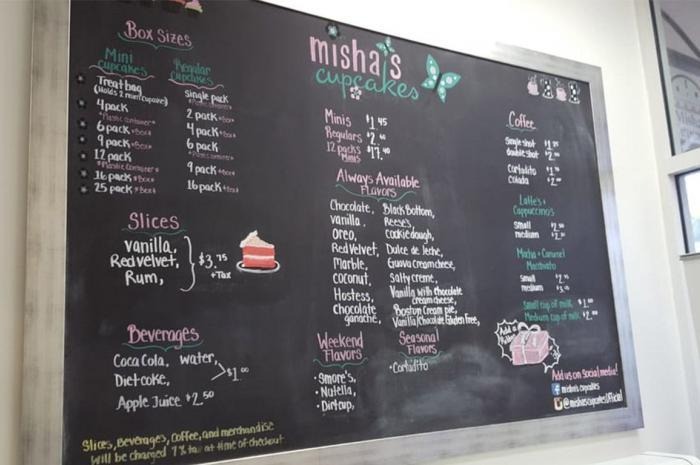 Box Sizes
Mini
cupcakes
Treat bag
(Holds 2 mini cupcakes)
4 pack
*Plastic container*
6 pack *Box*
9 pack *Box*
12 pack
*Plastic Container*
16 pack *Box*
25 pack *Box*
Regular
cupcakes
single pack
2 pack
4 pack
6 pack
9 pack
16 pack
Slices
vanilla,
Red velvet,
Rum,
$3.75
+Tax
Beverages
Coca Cola, water,
Diet coke,
$1.00
Apple Juice $2.50
Slices, Beverages, Coffee, and merchandise
will be charged 7% tax at time of checkout
misha's
cupcakes
Minis $1.45
Regulars
12 packs
Minis
Always Available
Flavors
Chocolate,
vanilla,
Oreo,
Red Velvet,
Marble,
Coconut,
Hostess,
Chocolate
ganache,
Black Bottom,
Reese's,
Cookie dough,
Dulce de leche,
Guava cream cheese,
Salty creme,
Vanilla with chocolate
cream cheese,
Boston Cream pie,
Vanilla/Chocolate Gluten Free,
Weekend
Flavors
• Smore's,
• Nutella,
• Dirt cup,
Seasonal
Flavors
• Cortadito
Coffee
Single shot
double shot
Cortadito
Colada
Latte's +
Cappuccino's
Small
medium
Mocha + Caramel
Macchiato
Small
medium
Small cup of milk $1.00
Medium cup of milk $2.00
Add a
Add us on Social media!
misha's cupcakes
@mishascupcakesOfficial